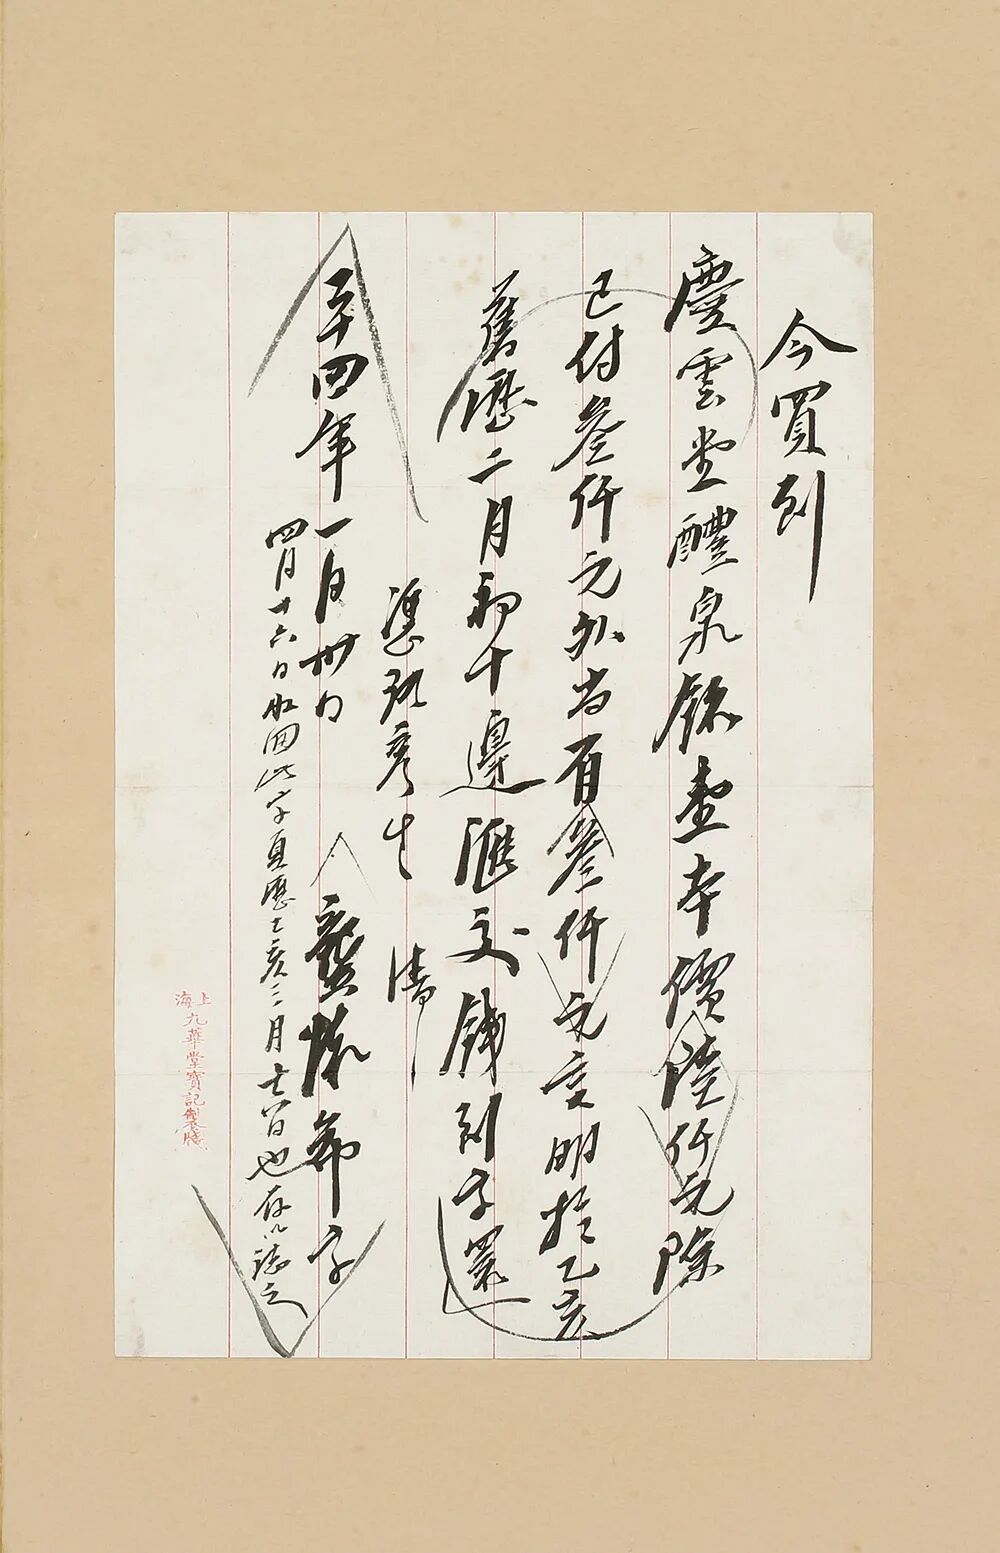 今買到
慶雲堂醴泉銘壹本價陸仟元除
已付叁仟元外尚有叁仟元言明於乙亥
舊曆二月初十邊滙交錢到字還
憑琱彥生
二十四年一月卅日 龔懷希字
四月十六日收回此字夏曆乙亥三月十四日也存以誌之
上海九華堂寶記製牋